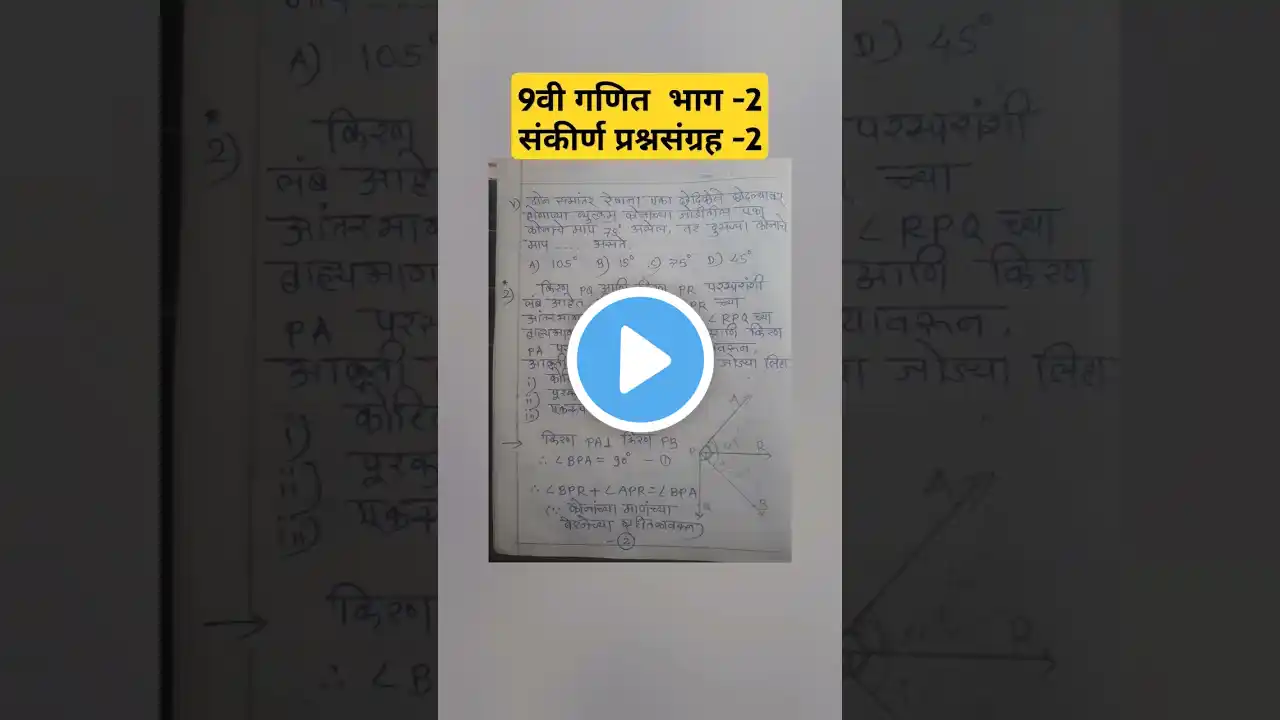 9वी गणित भाग -2
संकीर्ण प्रश्नसंग्रह -2
v) दोन समांतर रेषांना एका छेदिकेने छेदल्यावर
होणाऱ्या व्युत्क्रम कोनांच्या जोडीतील एका
कोनाचे माप 75° असेल, तर दुसऱ्या कोनाचे
माप ..... असते.
A) 105° B) 15° C) 75° D) 45°
2) किरण PQ आणि किरण PR परस्परांशी
लंब आहेत PR च्या
आंतरभाग ∠RPQ च्या
बाह्यभाग आणि किरण
PA यावरून.
आकृती जोड्या लिहा
i) कोटि
ii) पूरक
iii) एकरूप
→ किरण PA⊥ किरण PB
∴ ∠BPA = 90° - ①
∴ ∠BPR + ∠APR = ∠BPA
(∵ कोनांच्या मापांच्या
बेरजेच्या गृहीतकावरून)
- ②
A
P
R
Q
B